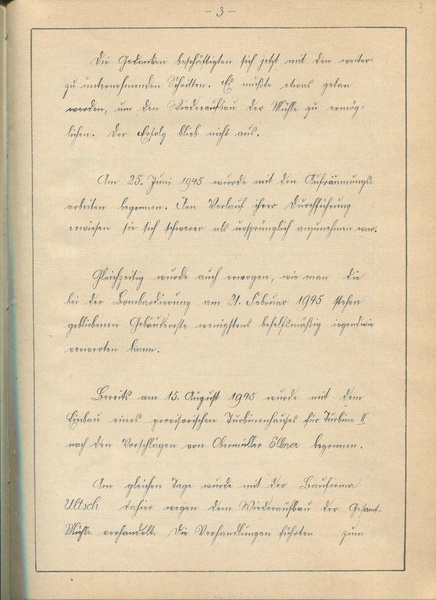 - 3 -
3
Die Gedanken beschäftigten sich jetzt mit den weiter
zu unternehmenden Schritten. Es mußte etwas getan
werden, um den Wiederaufbau der Mühle zu ermög-
lichen. Der Erfolg blieb nicht aus.
Am 25. Juni 1945 wurde mit den Aufräumungs-
arbeiten begonnen. Im Verlauf ihrer Durchführung
erwiesen sie sich schwerer als ursprünglich anzunehmen war.
Gleichzeitig wurde auch erwogen, wie man die
bei der Bombardierung am 21. Februar 1945 stehen
gebliebenen Gebäudereste wenigstens behelfsmäßig irgendwie
verwerten kann.
Bereits am 15. August 1945 wurde mit dem
Einbau eines provisorischen Turbinenhauses für Turbine II
nach den Vorschlägen von Obermüller begonnen.
Am gleichen Tage wurde mit der Baufirma
Ultsch daher wegen dem Wiederaufbau der Gesamt-
Mühle verhandelt. Die Verhandlungen führten zum